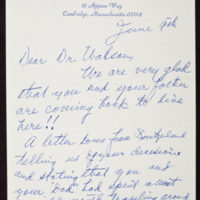 10 Appian Way
Cambridge, Massachusetts 02138
June 9th
Dear Dr. Watson,
We are very glad
that you and your father
are coming back to live
here!!
A letter from Switzerland
telling us of your decision,
and stating that you and
your "Dad" had spent a most
traveling around